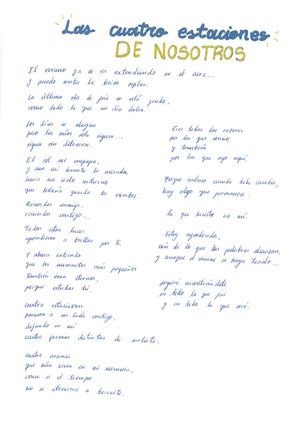 Las cuatro estaciones
DE NOSOTROS
El verano ya se va extendiendo en el aire...
y puedo sentir la brisa soplar.
La última ola de frío se está yendo,
como todo lo que un día dolió.
Los días se alargan
pero los míos sólo siguen...
siguen sin detenerse.
El sol me empapa,
y aun así levanto la mirada
hacia ese cielo nocturno
que todavía guarda tu nombre.
Recuerdos conmigo,
recuerdos contigo...
Todas estas luces
aprendieron a brillar por ti.
Y ahora entiendo
que los momentos más pequeños
también eran eternos,
porque estabas tú.
cuatro estaciones
pasaron a mi lado contigo,
dejando en mí
cuatro formas distintas de amarte.
cuatro escenas
que aún viven en mi memoria,
como si el tiempo
no se atreviera a borrarte.
Eres todas las razones
por las que
y también
por las que sigo aquí.
Porque incluso cuando todo cambia,
hay algo que permanece:
lo que hiciste en mí.
Estoy agradecida,
más de lo que las palabras alcanzan,
y aunque el ya no se haya
seguiré recordándote
en todo lo que fui
y en todo lo que seré.